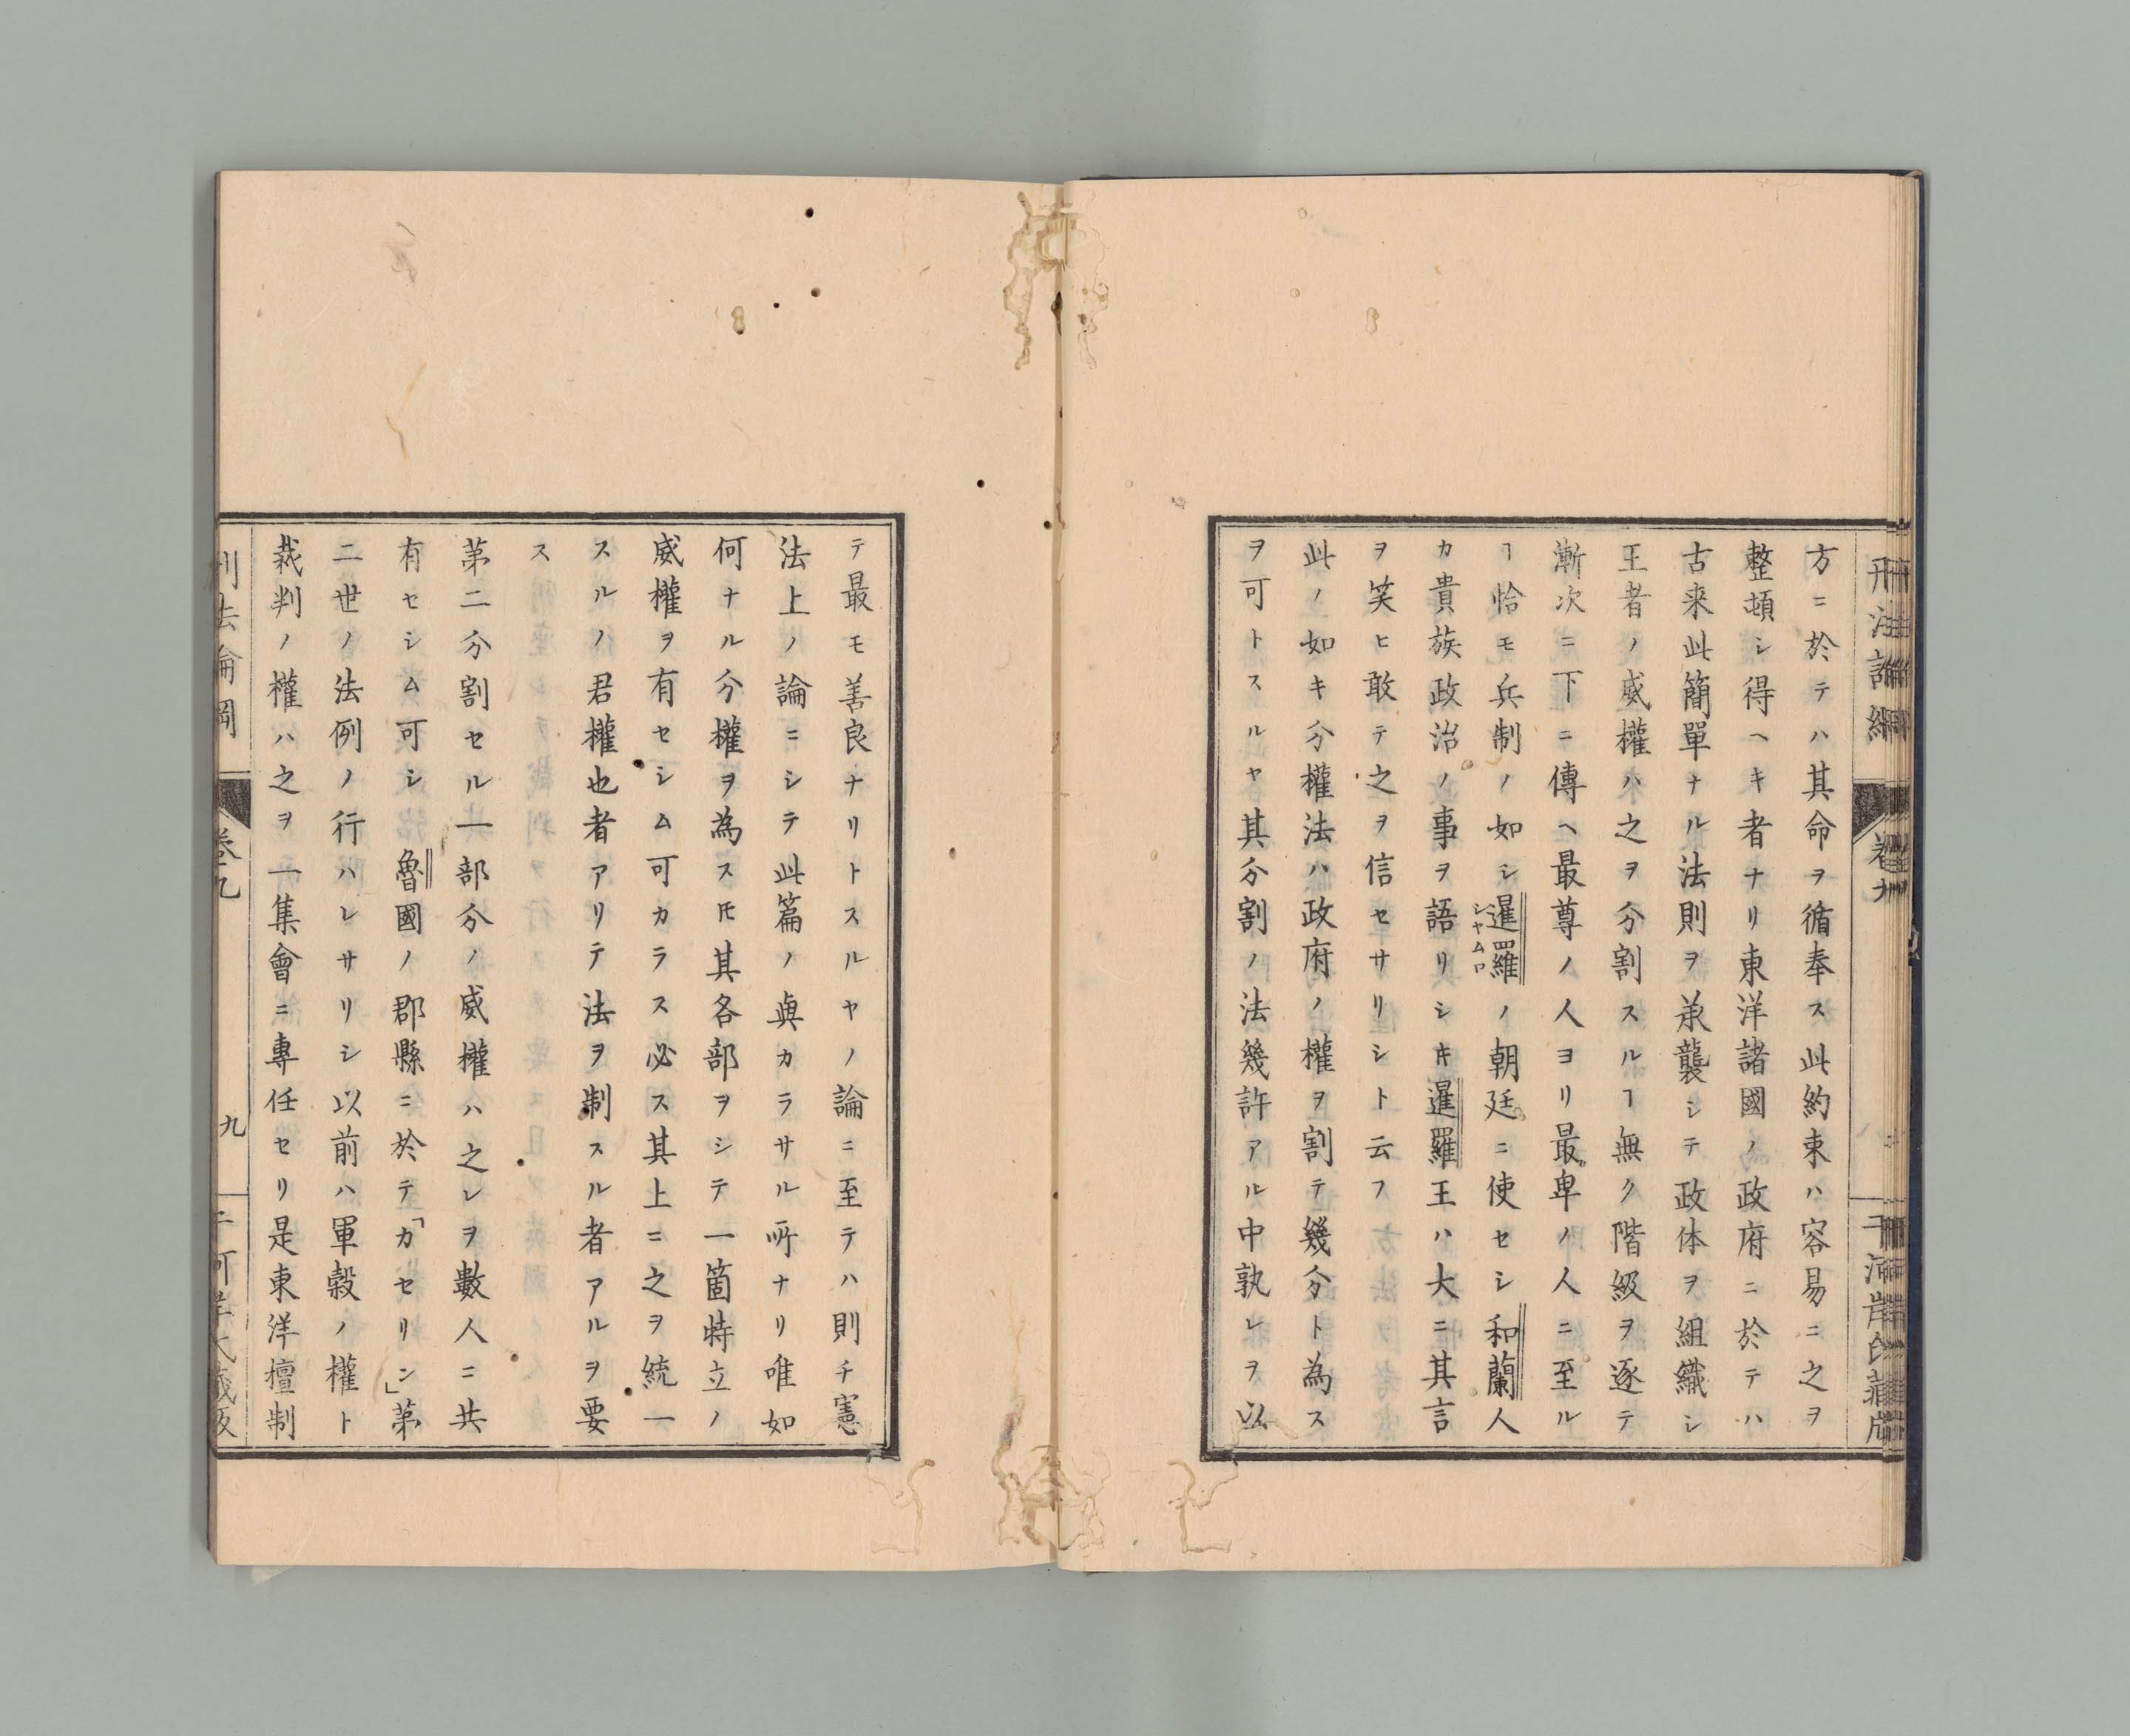 方ニ於テハ其命ヲ循奉ス此約束ハ容易ニ之ヲ
整頓シ得ヘキ者ナリ東洋諸國ノ政府ニ於テハ
古来此簡單ナル法則ヲ承襲シテ政体ヲ組織シ
王者ノ威權ハ之ヲ分割スルヿ無ク階級ヲ逐テ
漸次ニ下ニ傳ヘ最尊ノ人ヨリ最卑ノ人ニ至ル
ヿ恰モ兵制ノ如シ暹羅ノ朝廷ニ使セシ和蘭人
シヤムロ
カ貴族政治ノ事ヲ語リシキ暹羅王ハ大ニ其言
ヲ笑ヒ敢テ之ヲ信セサリシト云フ
此ノ如キ分權法ハ政府ノ權ヲ割テ幾分ト為ス
ヲ可トスルヤ其分割ノ法幾許アル中孰レヲ以
テ最モ善良ナリトスルヤノ論ニ至テハ則チ憲
法上ノ論ニシテ此篇ノ與カラサル所ナリ唯如
何ナル分權ヲ為スㇳモ其各部ヲシテ一箇特立ノ
威權ヲ有セシム可カラス必ス其上ニ之ヲ統一
スルノ君權也者アリテ法ヲ制スル者アルヲ要
ス
第二分割セル一部分ノ威權ハ之レヲ數人ニ共
有セシム可シ魯國ノ郡縣ニ於テ「カセリン」第
二世ノ法例ノ行ハレサリシ以前ハ軍穀ノ權ト
裁判ノ權ハ之ヲ一集會ニ專任セリ是東洋檀制
卷九
九